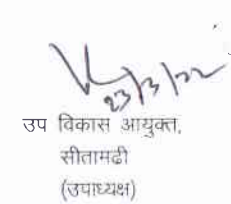 23/3/22
उप विकास आयुक्त,
सीतामढी
(उपाध्यक्ष)